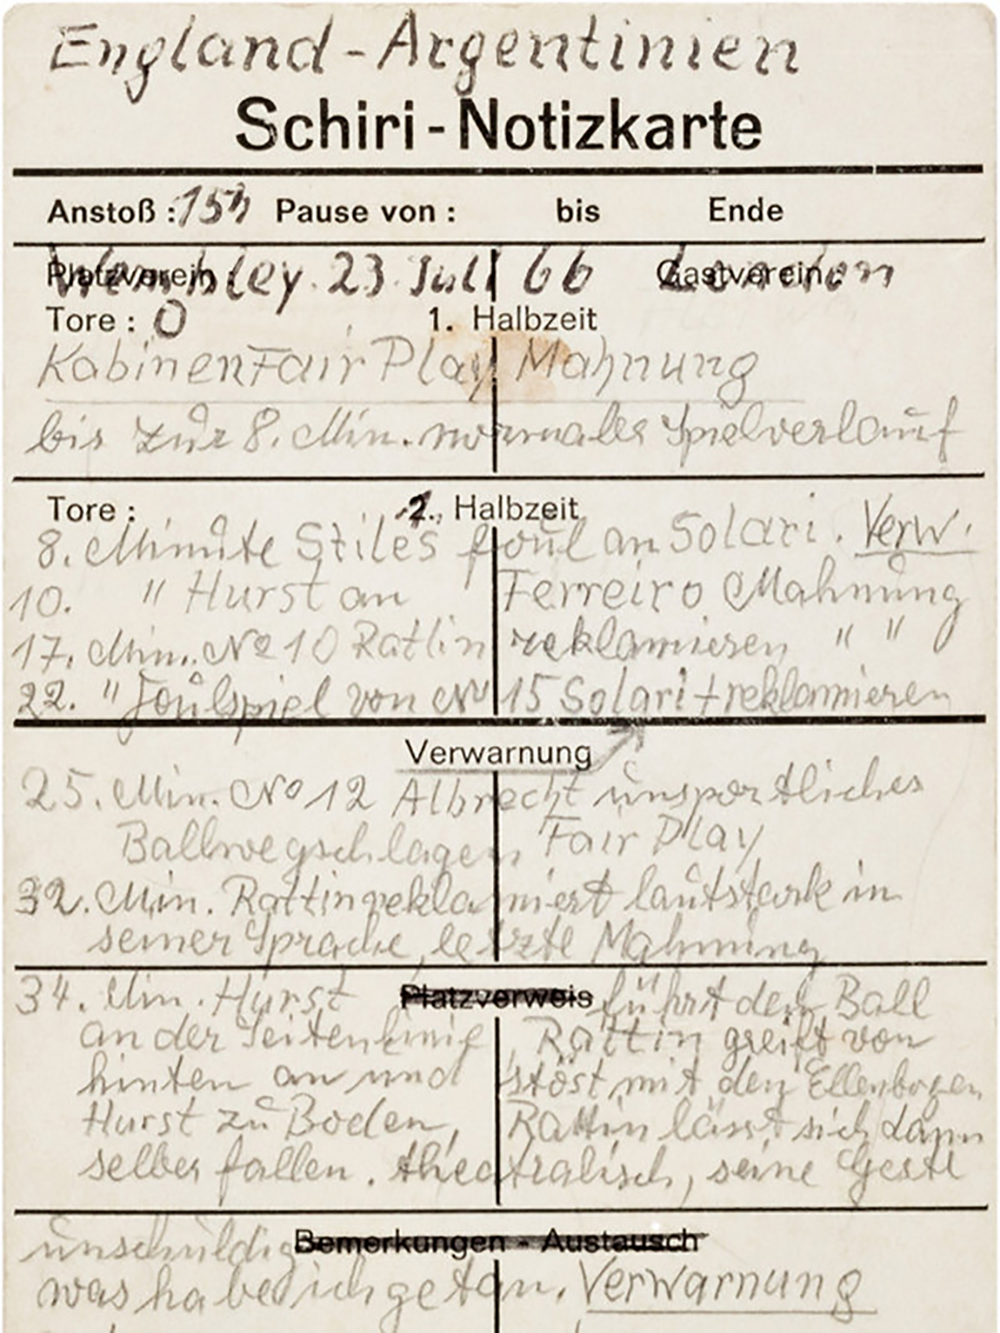 England - Argentinien
Schiri - Notizkarte
Anstoß : 15h Pause von : bis Ende
Platzverein : Gastverein :
Wembley. 23. Juli 66 London
Tore : 0 1. Halbzeit
Kabinen Fair Play Mahnung
bis zur 8. Min. normaler Spielverlauf
Tore : 2. Halbzeit
8. Minute Stiles foul an Solari. Verw.
10. " Hurst an Ferreiro Mahnung
17. Min. No 10 Rattin reklamieren " "
22. " Foulspiel von No 15 Solari + reklamieren
Verwarnung
25. Min. No 12 Albrecht unsportliches
Ballwegschlagen, Fair Play
32. Min. Rattin reklamiert lautstark in
seiner Sprache, letzte Mahnung
34. Min. Hurst Platzverweis führt den Ball
an der Seitenlinie, Rattin greift von
hinten an und stöst mit den Ellenbogen
Hurst zu Boden, Rattin lässt sich dann
selber fallen. theatralisch, seine Geste
unschuldig Bemerkungen - Austausch
was habe ich getan. Verwarnung